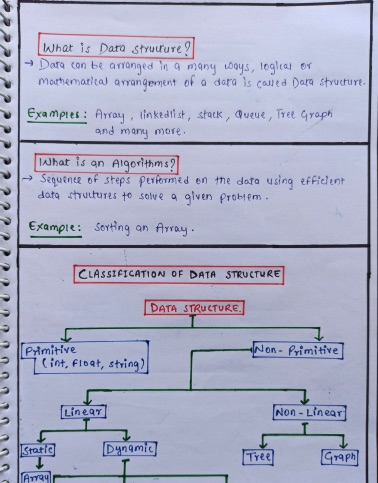 What is Data structure?
→ Data can be arranged in a many ways, logical or
mathematical arrangement of a data is called Data structure.
Examples: Array, linkedlist, stack, Queue, Tree Graph
and many more.
What is an Algorithms?
→ Sequence of steps performed on the data using efficient
data structures to solve a given problem.
Example: Sorting an Array.
CLASSIFICATION OF DATA STRUCTURE
DATA STRUCTURE.
Primitive
(int, float, string)
Non-Primitive
Linear
Non-Linear
Static
Dynamic
Tree
Graph
Array